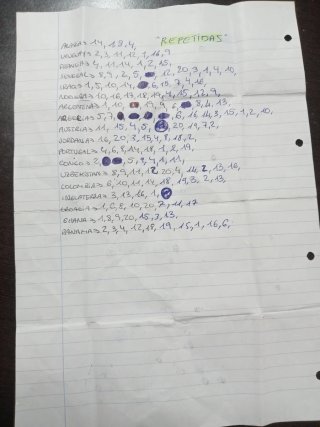 "REPETIDAS"
14, 18, 4,
URUGUAY => 2, 3, 11, 12, 1, 16, 9
4, 11, 14, 1, 2, 15,
SENEGAL => 8, 9, 2, 5, 12, 20, 3, 1, 4, 10,
1, 5, 10, 14, 6, 15, 7, 4, 16,
NORUEGA => 10, 16, 17, 18, 19, 4, 15, 12, 9
ARGENTINA => 1, 10, 19, 9, 6, 8, 4, 13,
5, 7, 6, 16, 14, 3, 15, 1, 2, 10
AUSTRIA => 11, 15, 4, 5, 20, 19, 7, 2,
JORDANIA => 16, 20, 3, 15, 4, 8, 18, 2,
PORTUGAL => 4, 6, 8, 14, 18, 1, 2, 19
CONGO => 2, 5, 3, 4, 1, 11,
UZBEKISTAN => 8, 9, 11, 12, 20, 4, 14, 2, 13, 16,
COLOMBIA => 6, 10, 11, 14, 18, 19, 3, 2, 13,
INGLATERRA => 3, 13, 16, 1,
CROACIA => 1, 6, 8, 10, 20, 7, 11, 17
GHANA => 1, 8, 9, 20, 15, 3, 13,
PANAMA => 2, 3, 4, 12, 18, 19, 15, 1, 16, 6,